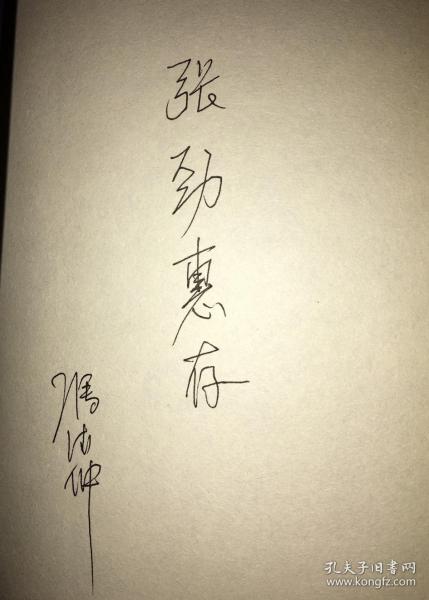 张劲惠存
冯法祀
孔夫子旧书网
www.kongfz.com